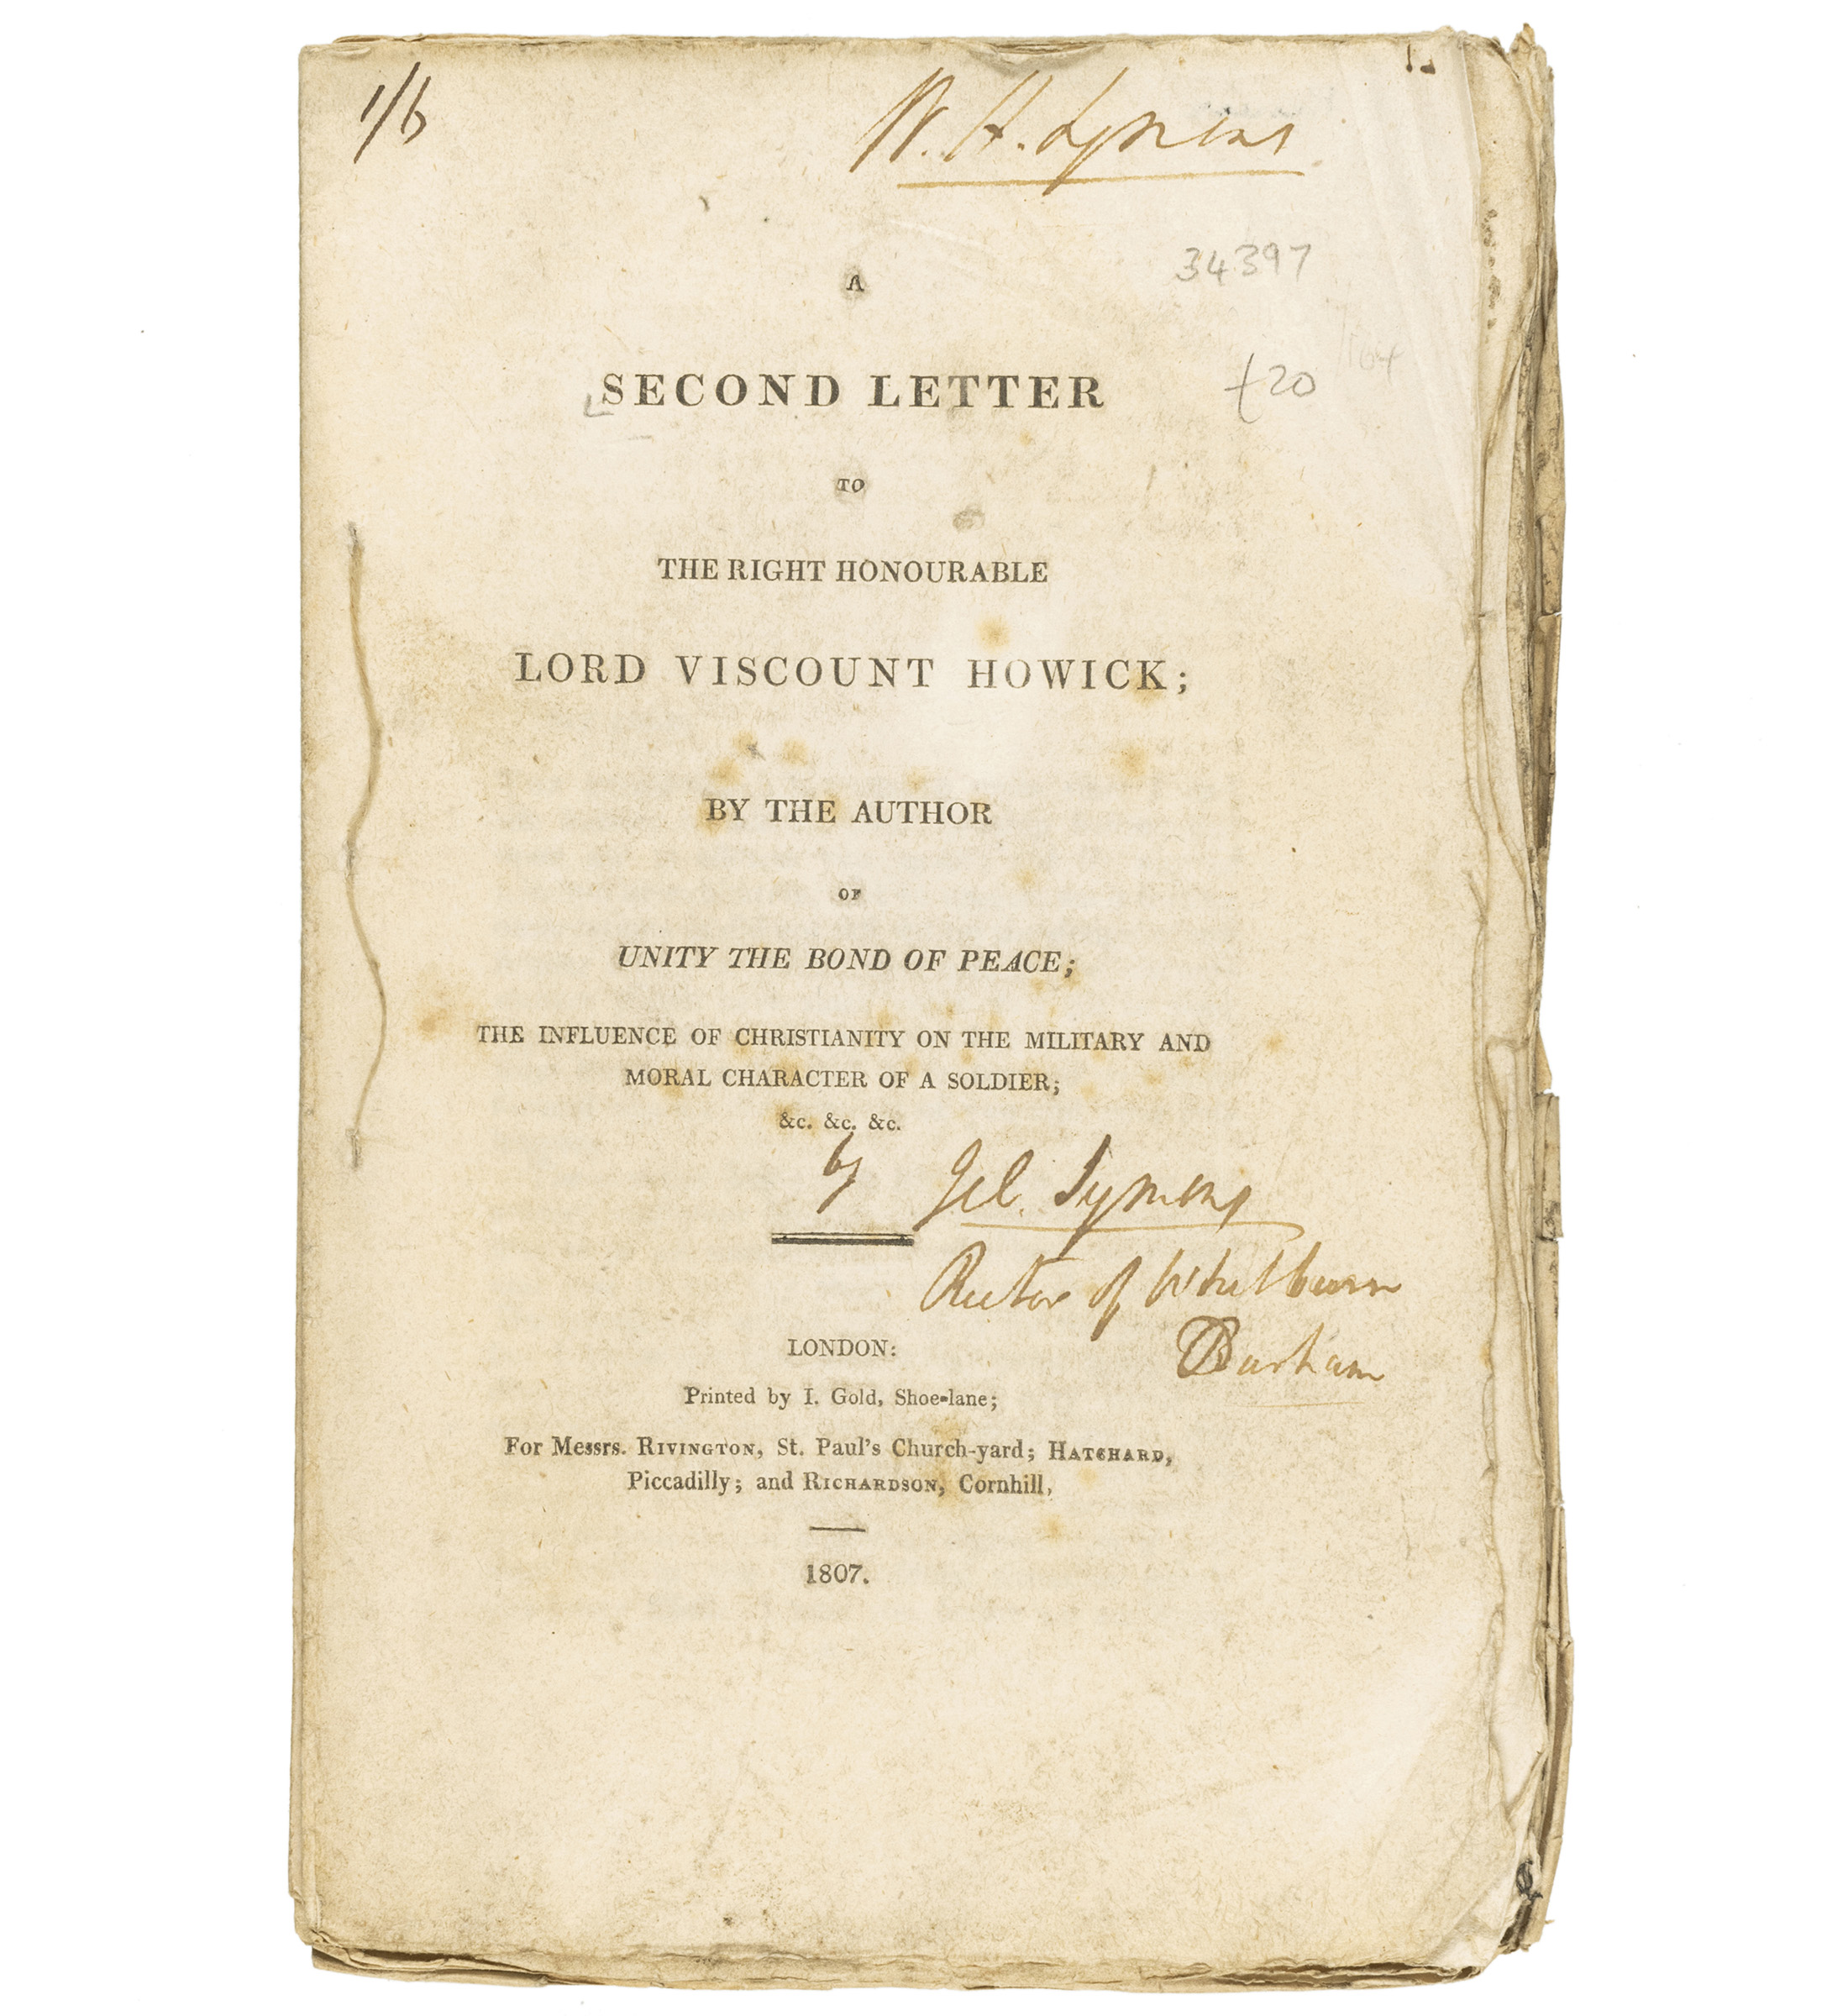 1/6
W. H. Symons
34397
A
SECOND LETTER
£20
TO
THE RIGHT HONOURABLE
LORD VISCOUNT HOWICK;
BY THE AUTHOR
OF
UNITY THE BOND OF PEACE;
THE INFLUENCE OF CHRISTIANITY ON THE MILITARY AND
MORAL CHARACTER OF A SOLDIER;
&c. &c. &c.
by Jel. Symons
Rector of Whitburn
Durham
LONDON:
Printed by I. Gold, Shoe-lane;
For Messrs. RIVINGTON, St. Paul's Church-yard; HATCHARD,
Piccadilly; and RICHARDSON, Cornhill,
1807.